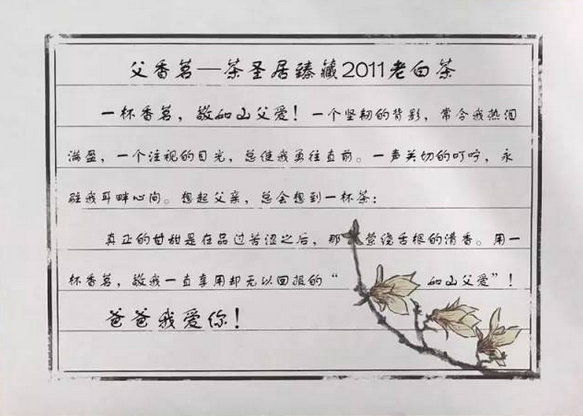 父香茗—茶圣居臻藏2011老白茶
一杯香茗，敬如山父爱！一个坚韧的背影，常令我热泪
满盈，一个注视的目光，总使我勇往直前。一声关切的叮咛，永
驻我耳畔心间。想起父亲，总会想到一杯茶：
真正的甘甜是在品过苦涩之后，那 萦绕舌根的清香。用一
杯香茗，敬我一直享用却无以回报的“ 如山父爱”！
爸爸我爱你！